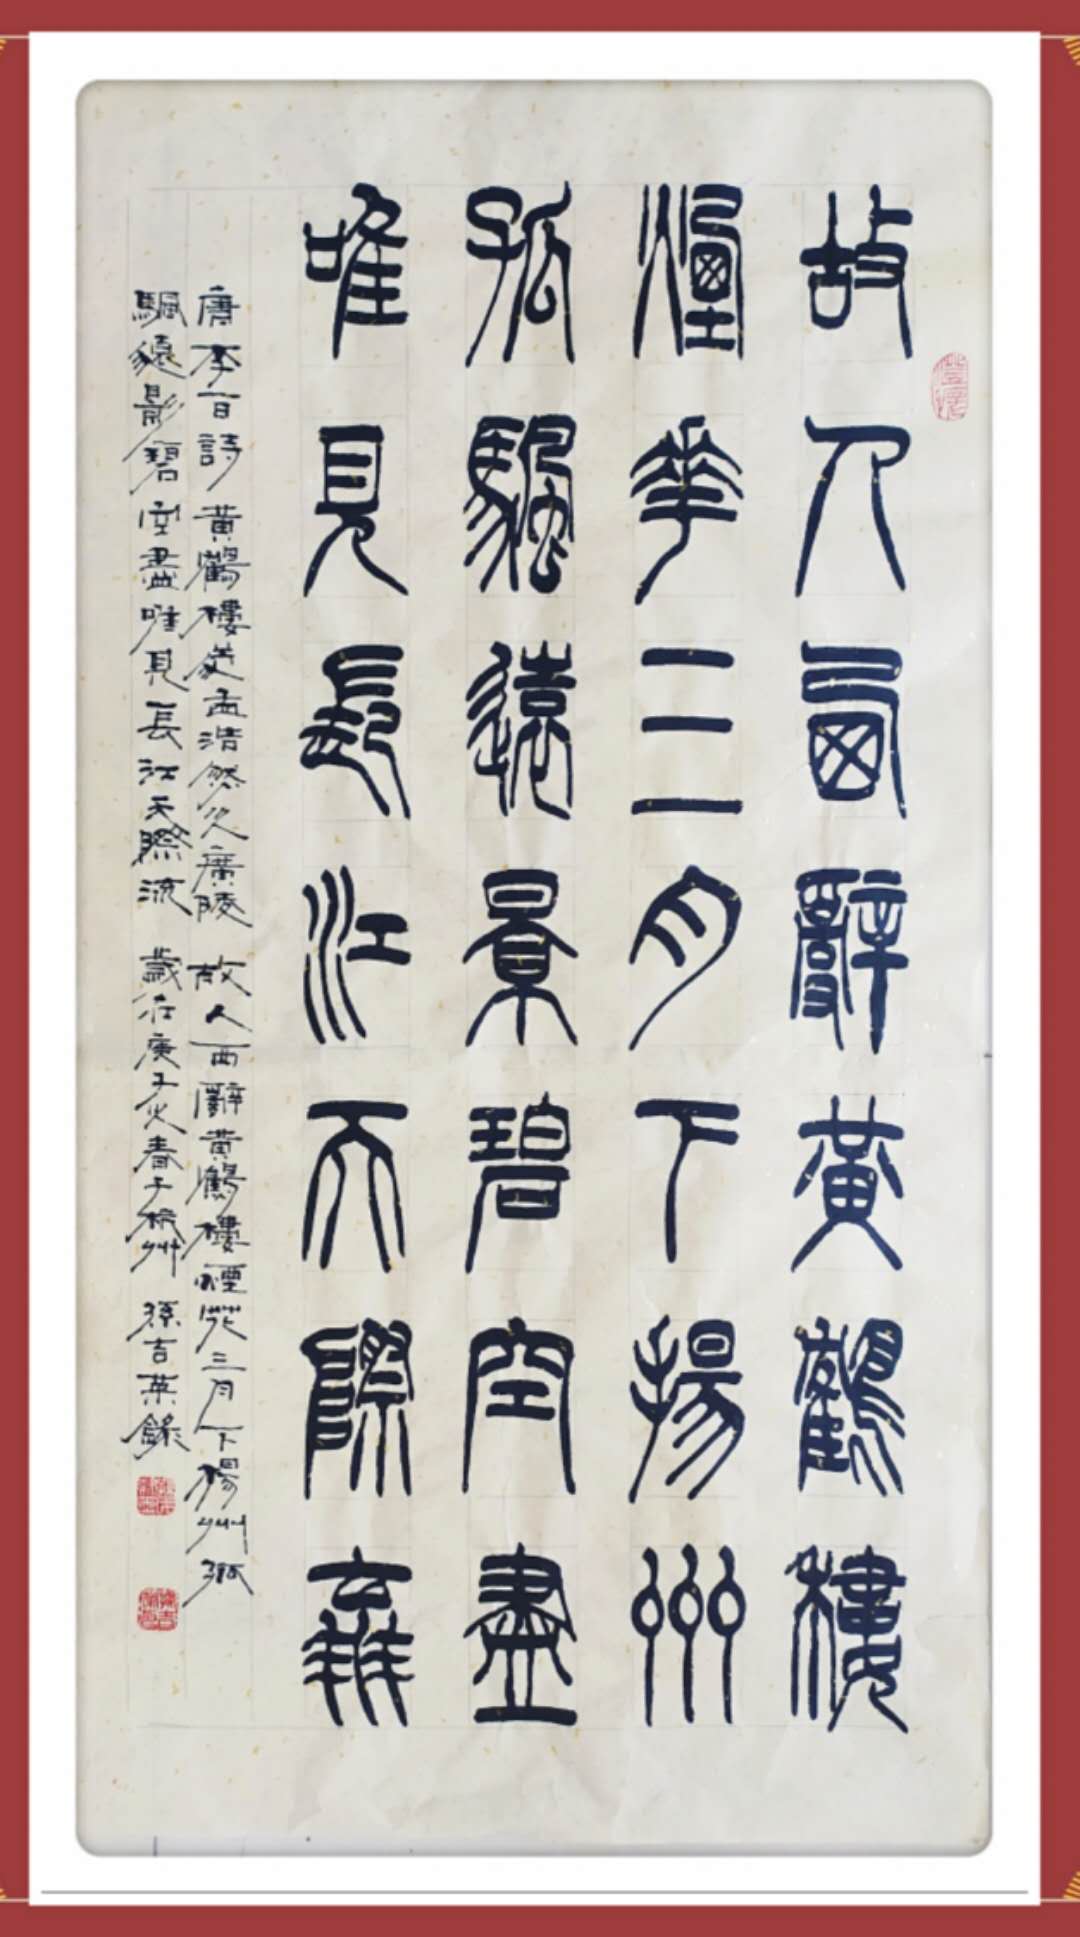 故人西辭黃鶴樓
煙華三月下揚州
孤颿遠景碧空盡
唯見長江天際流
唐李白詩 黃鶴樓送孟浩然之廣陵 故人西辭黃鶴樓煙花三月下楊州孤
颿遠影碧空盡唯見長江天際流 歲在庚子春于杭州 孫吉錄
澄懷